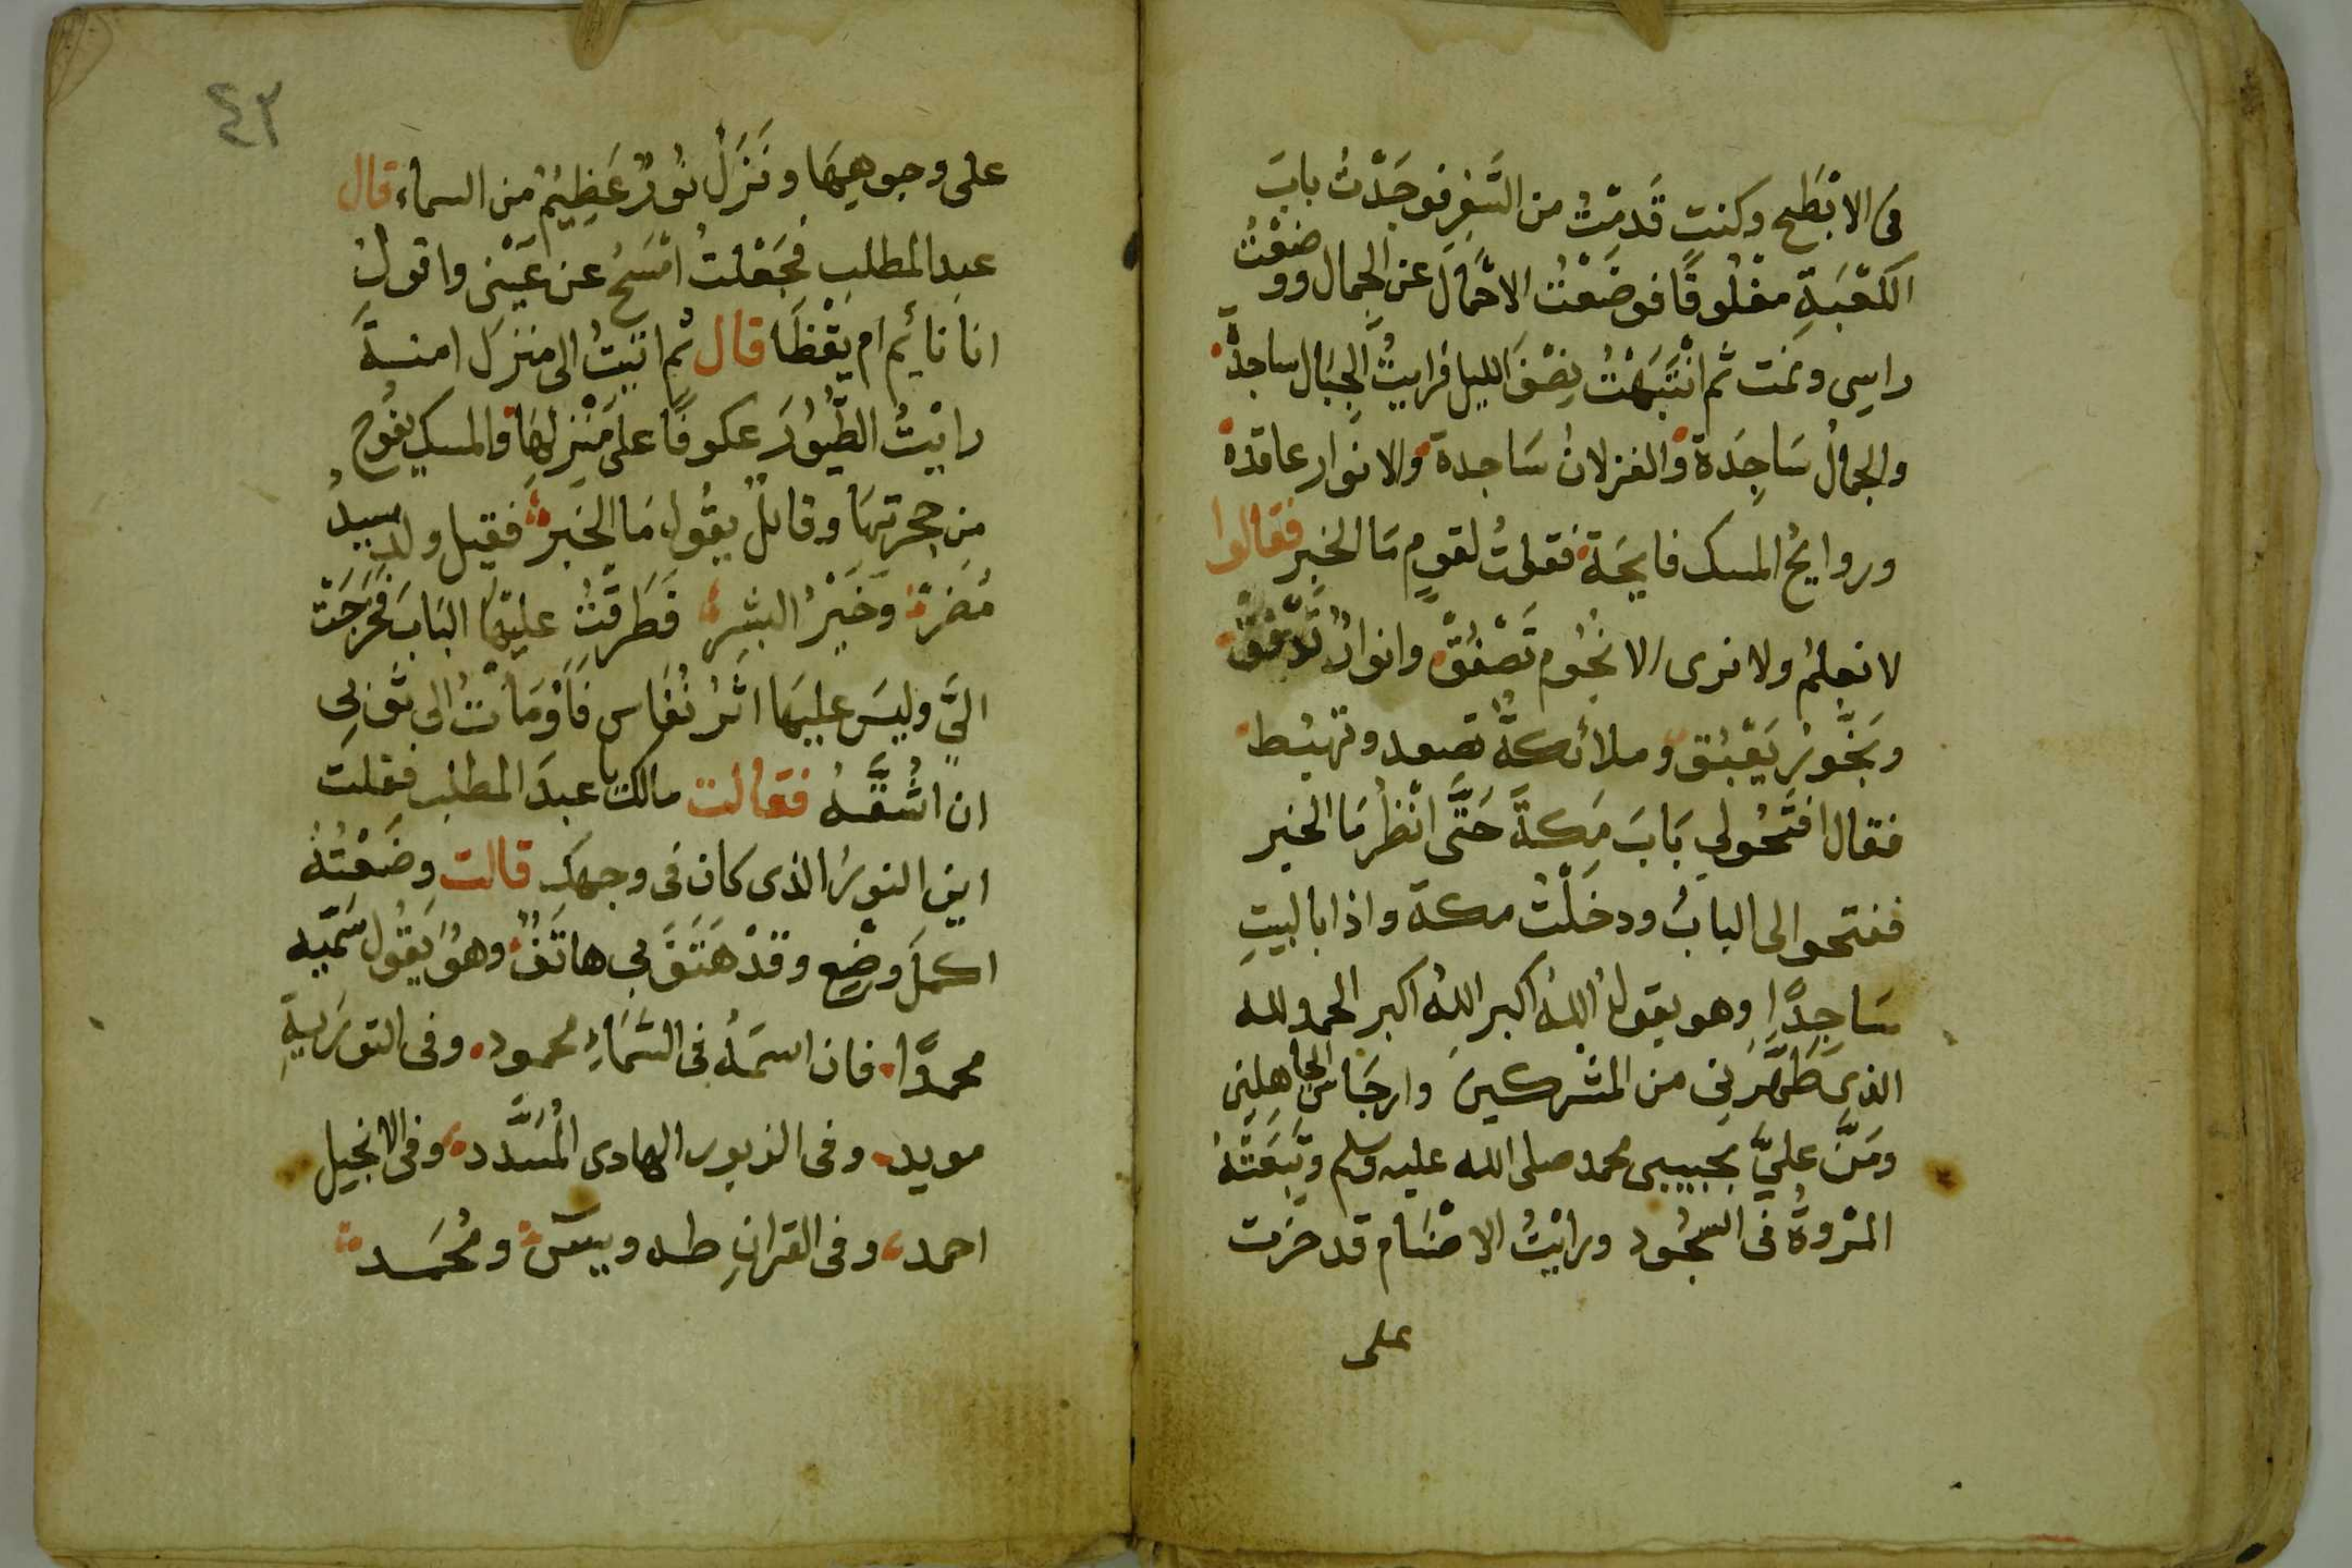 فى الابْطَحِ وكنتِ قَدِمْتُ من السَّفرِ فوجَدْتُ بابَ
الكَعْبَةِ مغْلُوقًا فوضَعْتُ الاحْمَالَ عن الجِمال ووضَعْتُ
راسِى ونمت ثم انْتَبَهْتُ نِصْفَ الليل فرايتُ الجِبَال ساجدةً
والجمالُ سَاجِدَة والغزلانُ سَاجدة والانوار عاقدة
وروايحُ المسك فايحَة فقلتُ لقومٍ مَا الخبر فقالوا
لا نعلمُ ولا نرى الا نجُوم تَصْفُقُ وانوارٌ تَدفُّقُ
وبَخُّورُ يَعْبُق وملائكةٌ تصعد وتهبُط
فقال افتَحُولى بَابَ مَكةَ حَتَّى انْظُرمَا الخبر
ففتحوا الى البابُ ودخَلْتُ مكة واذا بالبيتِ
سَاجِدًا وهو يقولُ اللهُ اكبر اللهُ اكبر الحمد لله
الذى طَهَّرَنِى من المشْركينَ وارجَاس الجاهلين
ومَنَّ عليَّ بحبيبى محمد صلى الله عليه وسلم وتَبِعَتْهُ
المَرْوةُ فى السجُود ورايْتُ الاصْنَام قد خرت
على
٤٣
على وجوهِهَا ونَزَلَ نُورٌ عَظِيمٌ من السماء قال
عبد المطلبِ فجَعْلتُ امْسَحُ عن عَيْنى واقولُ
انا نَائِم ام يقْظَا قال ثم اتيتُ الى منزل امنةَ
رايْتُ الطُّيُورَ عكوفًا على مَنْزِلهَا والمسك يفُوح
من حجرتِهَا وقائلٌ يقُول مَا الخَبر فقيل ولد سيدُ
مُضر وخَيْرُ البشرِ فَطَرقْتُ عليهَا البَابَ فخَرَجَتْ
اليَّ وليسَ عليهَا اثَرُ نُفَاس فَأوْمَأْتُ الى ثَوْبِى
ان اشُقَّهُ فقالت مالك يا عبدَ المطلب فقلت
اين النورُ الذى كان فى وجهكِ قالت وضَعْتُهُ
اكمَلَ وضْعٍ وقَدْ هَتَفَ بى هاتَفٌ وهُو يَقُول سَمّيه
محمدًا فان اسمَهُ فى السَّمَاءِ محمود وفى التورَيةِ
مويد وفى الزبور الهادى المُسَدَّد وفى الانجيل
احمد وفى القرانِ طه ويس ومُحَمد